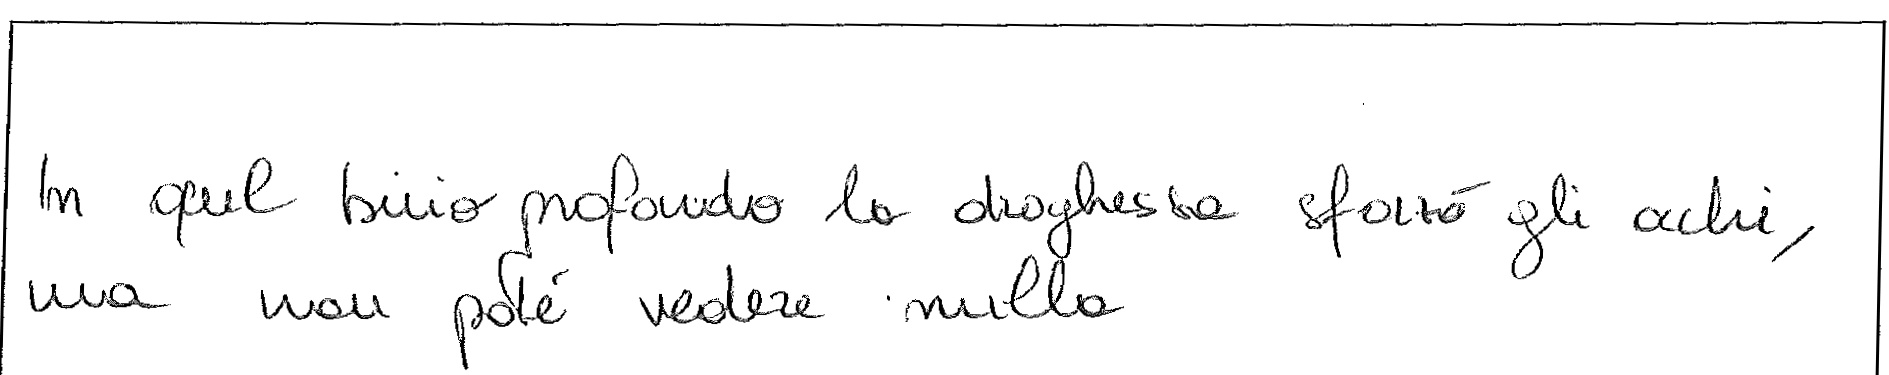 In quel buio profondo la draghessa sforzò gli occhi,
ma non poté vedere nulla